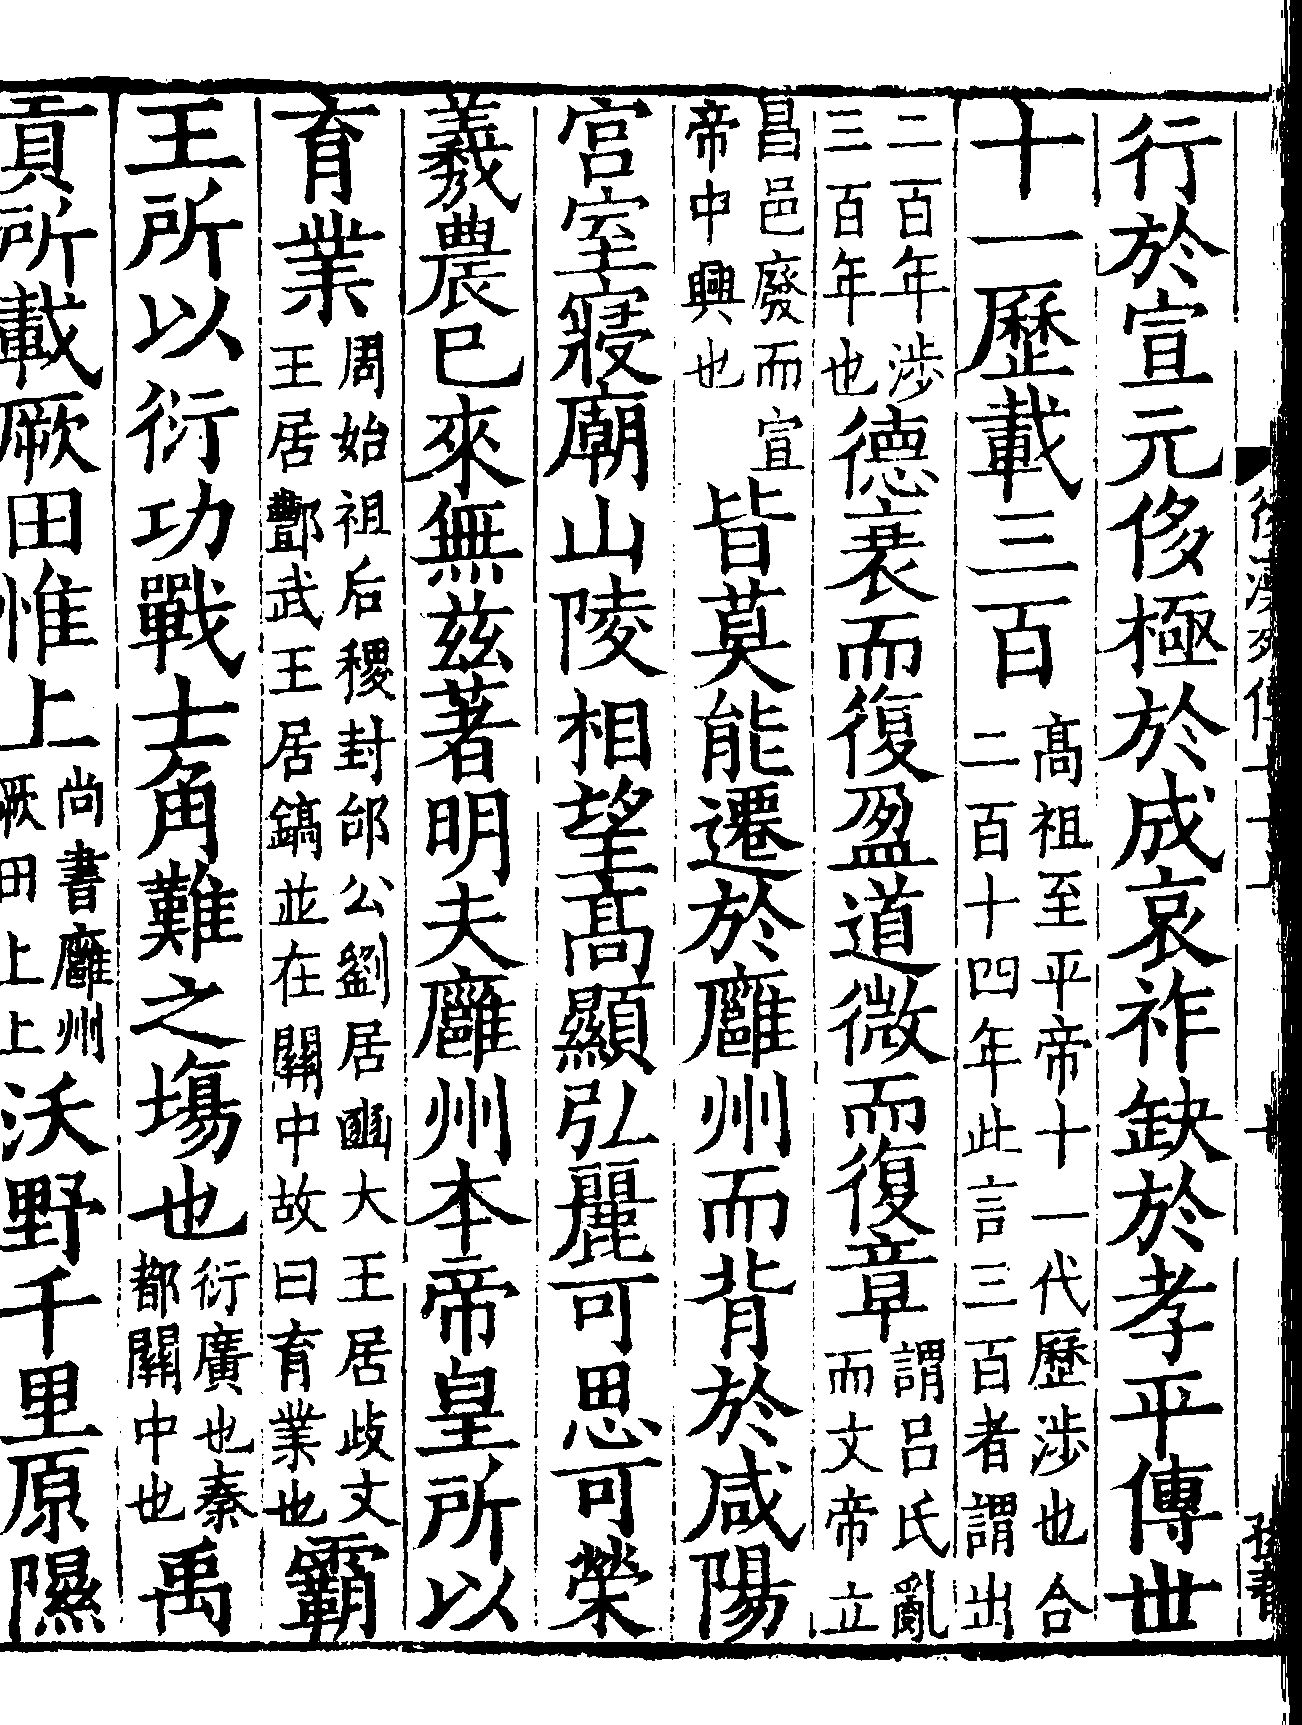 行於宣元侈極於成哀祚缺於孝平傳世
十一歷載三百高祖至平帝十一代歷涉也合二百十四年此言三百者謂出
二百年涉三百年也德衰而復盈道微而復章謂呂氏亂而文帝立
昌邑廢而宣帝中興也皆莫能遷於廱州而背於咸陽
宮室寢廟山陵相望高顯弘麗可思可榮
羲農已來無茲著明夫廱州本帝皇所以
育業周始祖后稷封邰公劉居豳大王居歧文王居酆武王居鎬並在關中故曰育業也霸
王所以衍功戰士角難之場也衍廣也秦都關中也禹
貢所載厥田惟上尚書廱州厥田上上沃野千里原隰